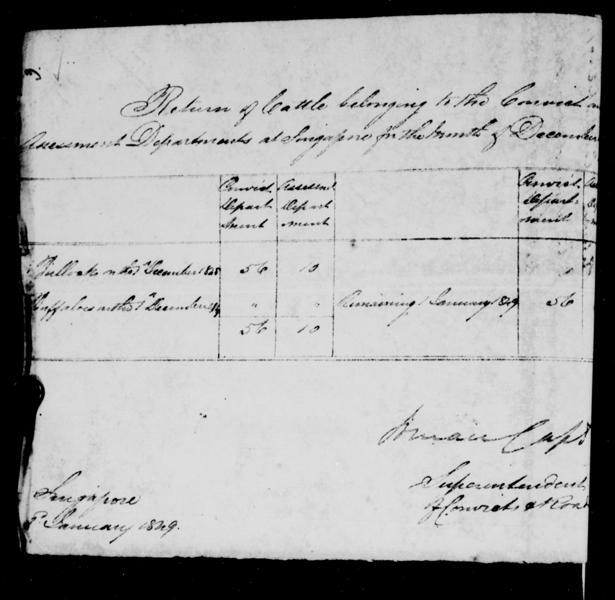 3.
Return of Cattle belonging to the Convict
Assessment Departments at Singapore for the Month of December
Convict Depart ment
Assessmt Depart ment
Convict Depart- ment
Bullocks on the 1st December 1848 56 10
Buffaloes on the 1st December " "
Remaining 1 January 1849 56
56 10
Capt
Superintendent
of Convicts & Roads
Singapore
January 1849.